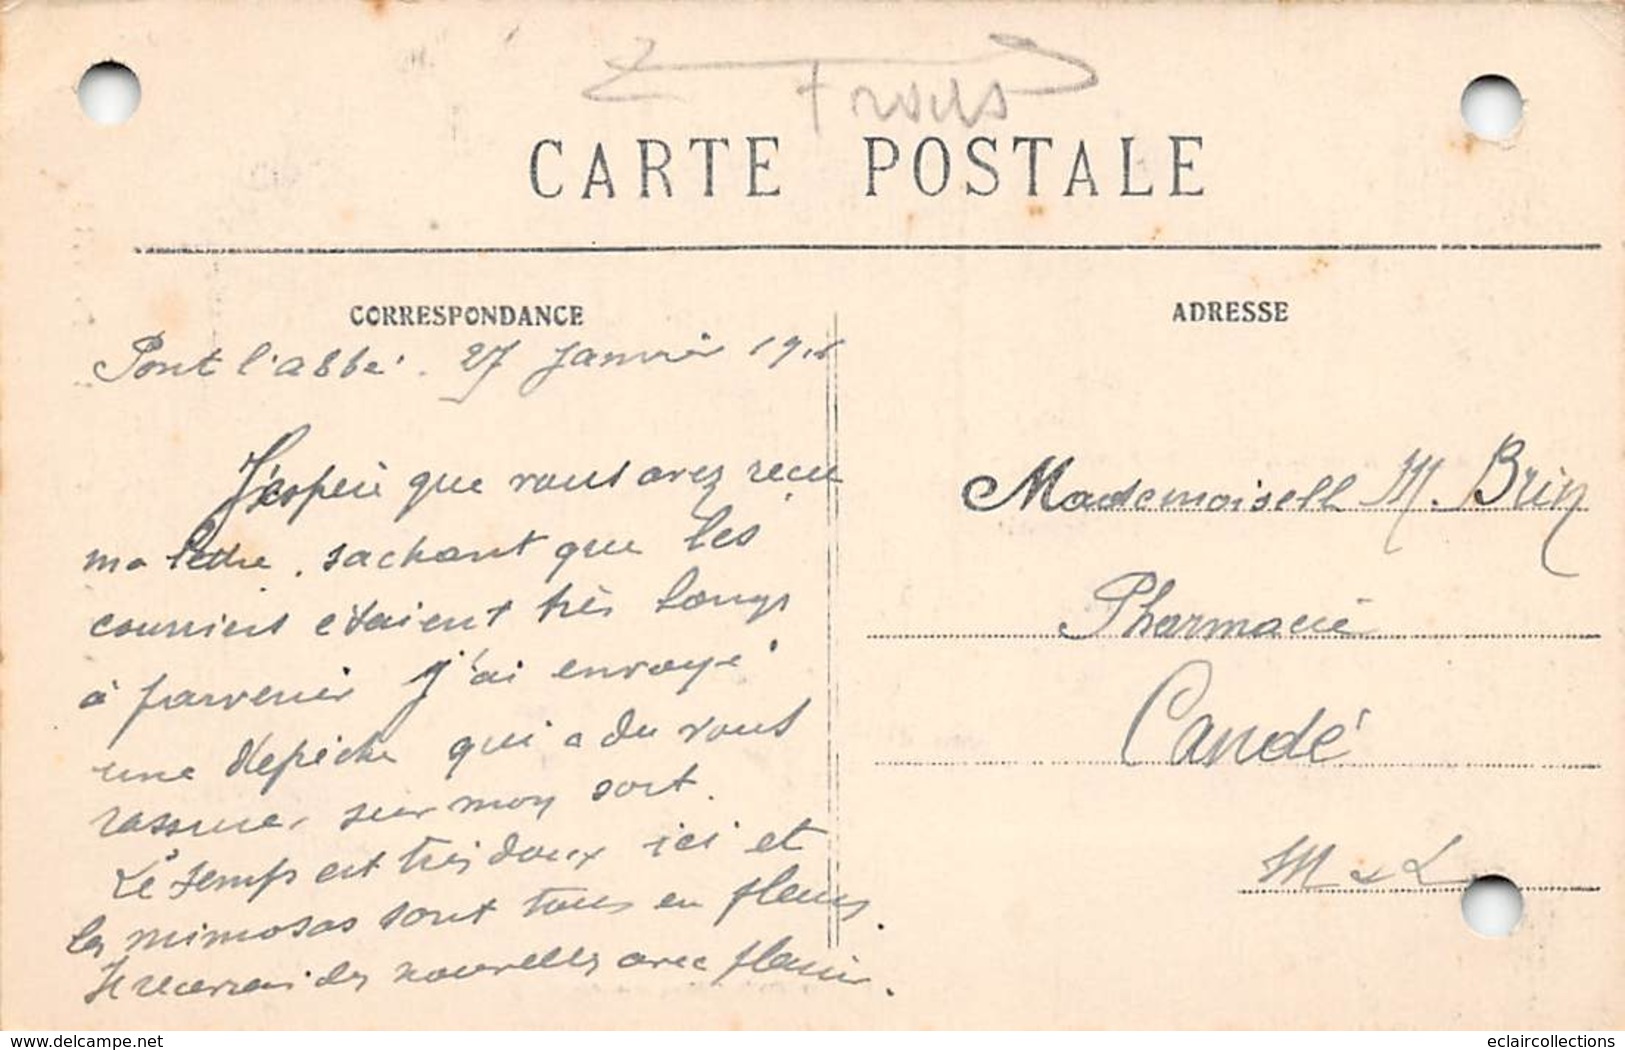 CARTE POSTALE
CORRESPONDANCE
Pont l'abbé. 27 Janvier 191
J'espère que vous avez reçu
ma lettre, sachant que les
courriers étaient très longs
à parvenir j'ai envoyé
une depêche qui a du vous
rassurer sur mon sort.
Le temps est très doux ici et
les mimosas sont tous en fleurs.
Je recevrai des nouvelles avec plaisir.
ADRESSE
Mademoiselle M. Brin
Pharmacie
Candé
M & L
www.delcampe.net
eclaircollections